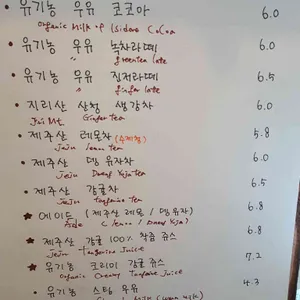 유기농 우유 코코아 6.0
Organic Milk of Isidore CoCoa
유기농 우유 녹차라떼 6.0
greentea late
유기농 우유 진저라떼 6.5
ginger late
지리산 산청 생강차 6.0
Jiri Mt. Ginger tea
제주산 레몬차 (수제청) 5.8
Jeju lemon tea
제주산 댕유자차 6.0
Jeju Yuja tea
제주산 감귤차 6.5
Jeju tangerine tea
에이드 (제주산 레몬 / 댕유자) 6.8
Ade (lemon / Yuja)
제주산 감귤 100% 착즙 쥬스 6.8
Jeju tangerine Juice
유기농 감귤 쥬스 7.2
Organic tangerine Juice
유기농 스팀 우유